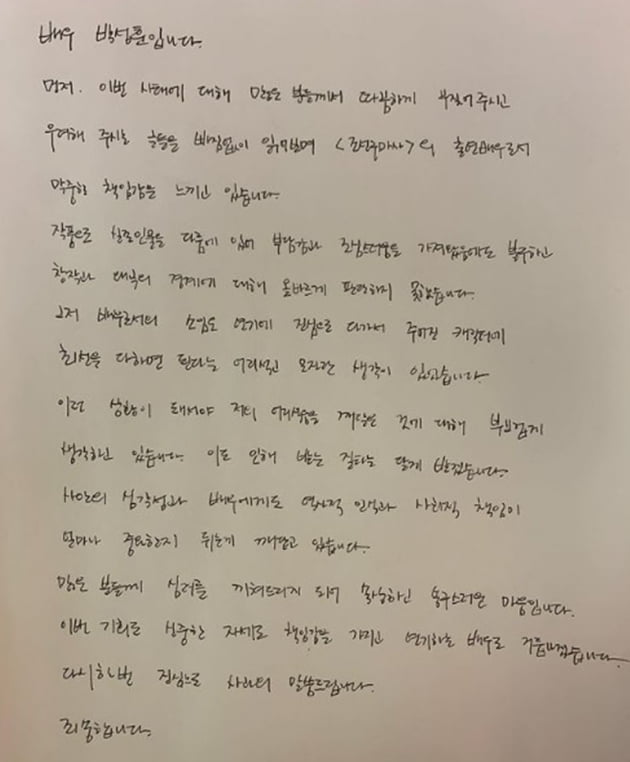 배우 박성훈입니다.
먼저, 이번 사태에 대해 많은 분들께서 따끔하게 꾸짖어주시고
우려해 주시는 글들을 빠짐없이 읽어보며 <조선구마사>의 출연배우로서
막중한 책임감을 느끼고 있습니다.
작품으로 실존인물을 다룸에 있어 부담감과 조심스러움을 가져왔음에도 불구하고
창작과 왜곡의 경계에 대해 올바르게 판단하지 못했습니다.
그저 배우로서의 소임도 연기에 진심으로 다가서 주어진 캐릭터에
최선을 다하면 된다는 어리석고 모자란 생각이 있었습니다.
이런 상황이 돼서야 저의 어리석음을 깨달은 것에 대해 부끄럽게
생각하고 있습니다. 이로 인해 받는 질타는 달게 받겠습니다.
사안의 심각성과 배우에게도 역사적 인식과 사회적 책임이
얼마나 중요한지 뒤늦게 깨닫고 있습니다.
많은 분들께 심려를 끼쳐드리게 되어 죄송하고 송구스러운 마음입니다.
이번 기회로 신중한 자세로 책임감을 가지고 연기하는 배우로 거듭나겠습니다.
다시 한번 진심으로 사과의 말씀드립니다.
죄송합니다.